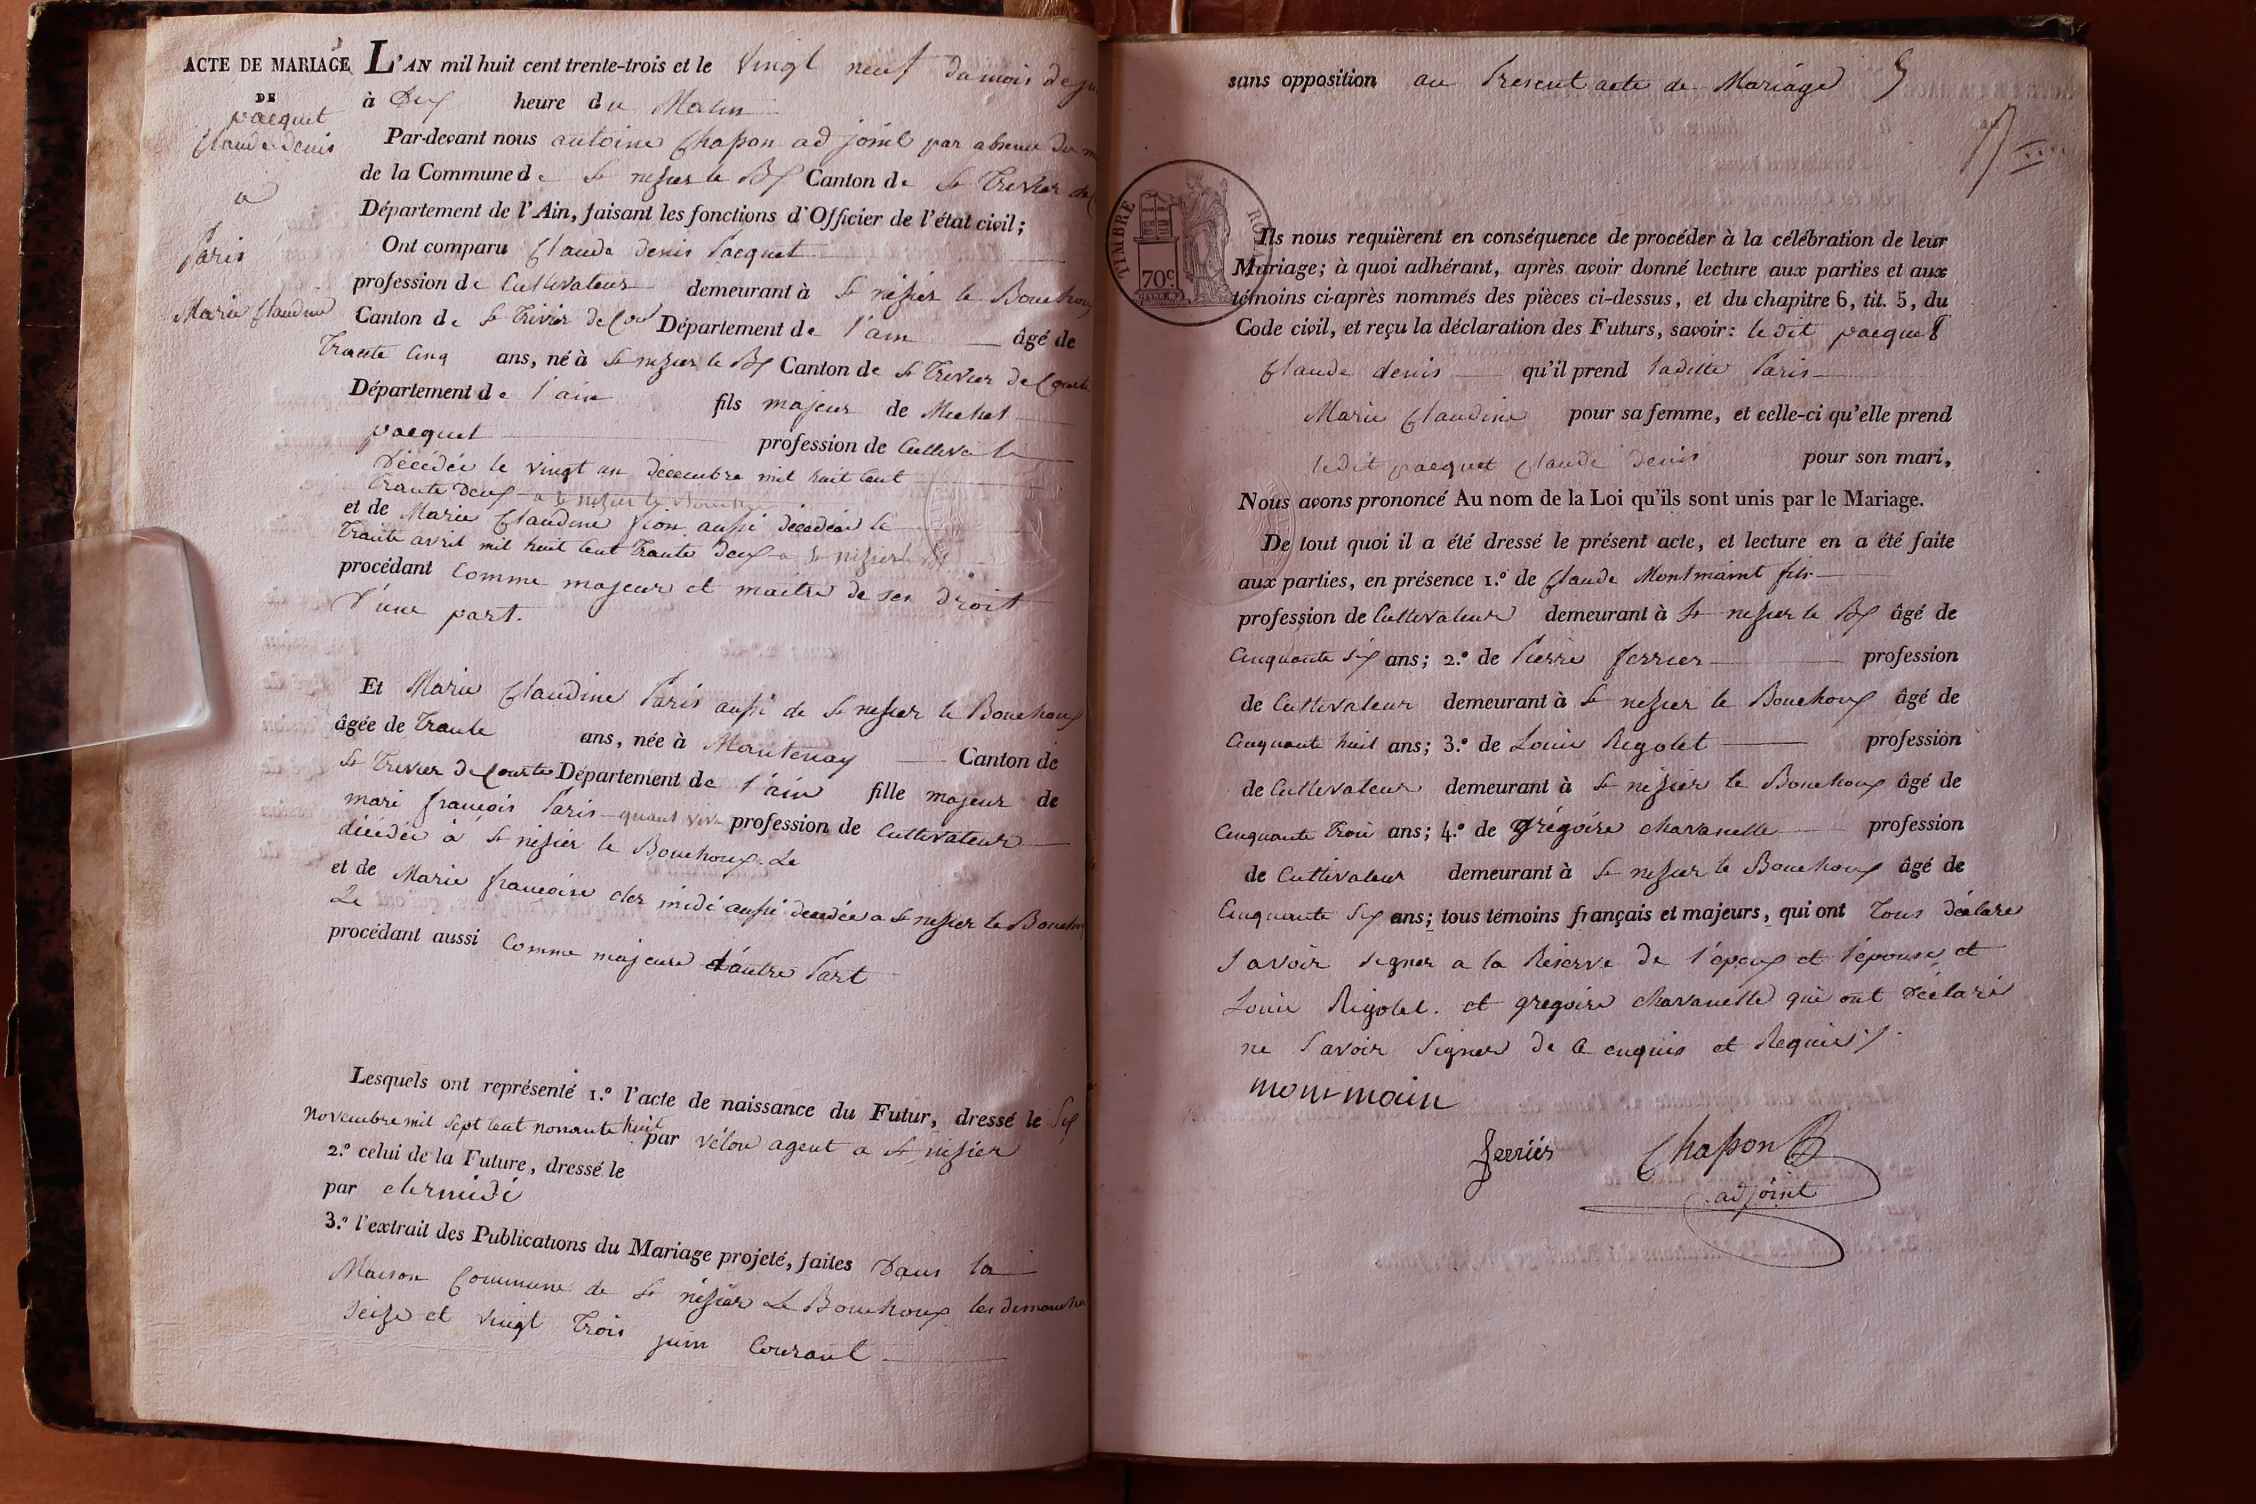 ACTE DE MARIAGE
DE
pacquet
Claude denis
a
Paris
Marie Claudine
L'AN mil huit cent trente-trois et le vingt neuf du mois de ju
à Dix heure du Matin
Par-devant nous antoine Chapon adjoint par absence du m
de la Commune de St nizier le Bx Canton de St Trivier de C
Département de l'Ain, faisant les fonctions d'Officier de l'état civil;
Ont comparu Claude denis Pacquet
profession de Cultivateur demeurant à St nizier le Bouchoux
Canton de St Trivier de Cour Département de l'ain âgé de
Trante Cinq ans, né à St nizier le Bx Canton de St Trivier de Courte
Département de l'ain fils majeur de Michel
pacquet profession de Cultivate
Décédée le vingt un décembre mil huit Cent
Trante Deux a St nizier le Bouchoux
et de Marie Claudine pion aussi décédée le
Trante avril mil huit Cent Trante deux a St nizier le Bx
procédant Comme majeur et maitre de ses droit
d'une part.
Et Marie Claudine Paris aussi de St nizier le Bouchoux
âgée de Trante ans, née à Mantenay Canton de
St Trivier de Courte Département de l'ain fille majeur de
mari françois Paris quant vivr profession de Cultivateur
décédée à St nizier le Bouchoux. Le
et de Marie françoise cler midi aussi décédée a St nizier le Bouchoux
Le
procédant aussi Comme majeure d'autre Part
Lesquels ont représenté 1.º l'acte de naissance du Futur, dressé le Six
novembre mil Sept Cent nonante huit par vélon agent a St nizier
2.º celui de la Future, dressé le
par clermidi
3.º l'extrait des Publications du Mariage projeté, faites Dans la
Maison Commune de St nizier Le Bouchoux les dimanche
Seize et vingt Trois juin Courant
sans opposition au Present acte de Mariage
TIMBRE RO
70 c.
Ils nous requièrent en conséquence de procéder à la célébration de leur
Mariage; à quoi adhérant, après avoir donné lecture aux parties et aux
témoins ci-après nommés des pièces ci-dessus, et du chapitre 6, tit. 5, du
Code civil, et reçu la déclaration des Futurs, savoir: le dit pacquet
Claude denis qu'il prend laditte Paris
Marie Claudine pour sa femme, et celle-ci qu'elle prend
ledit pacquet Claude denis pour son mari,
Nous avons prononcé Au nom de la Loi qu'ils sont unis par le Mariage.
De tout quoi il a été dressé le présent acte, et lecture en a été faite
aux parties, en présence 1.º de Claude Montmaint fils
profession de Cultivateur demeurant à St nizier le Bx âgé de
Cinquante Six ans; 2.º de Pierre ferrier profession
de Cultivateur demeurant à St nizier le Bouchoux âgé de
Cinquante huit ans; 3.º de Louis Rigolet profession
de Cultivateur demeurant à St nizier le Bouchoux âgé de
Cinquante Trois ans; 4.º de grégoire chavanelle profession
de Cultivateur demeurant à St nizier le Bouchoux âgé de
Cinquante Six ans; tous témoins français et majeurs, qui ont Tous déclare
Savoir Signer a la Réserve de l'époux et l'épouse et
Louis Rigolet. et gregoire chavanelle qui ont déclaré
ne Savoir Signer de Ce enquis et Requis
monmain
ferriér
Chapon
adjoint